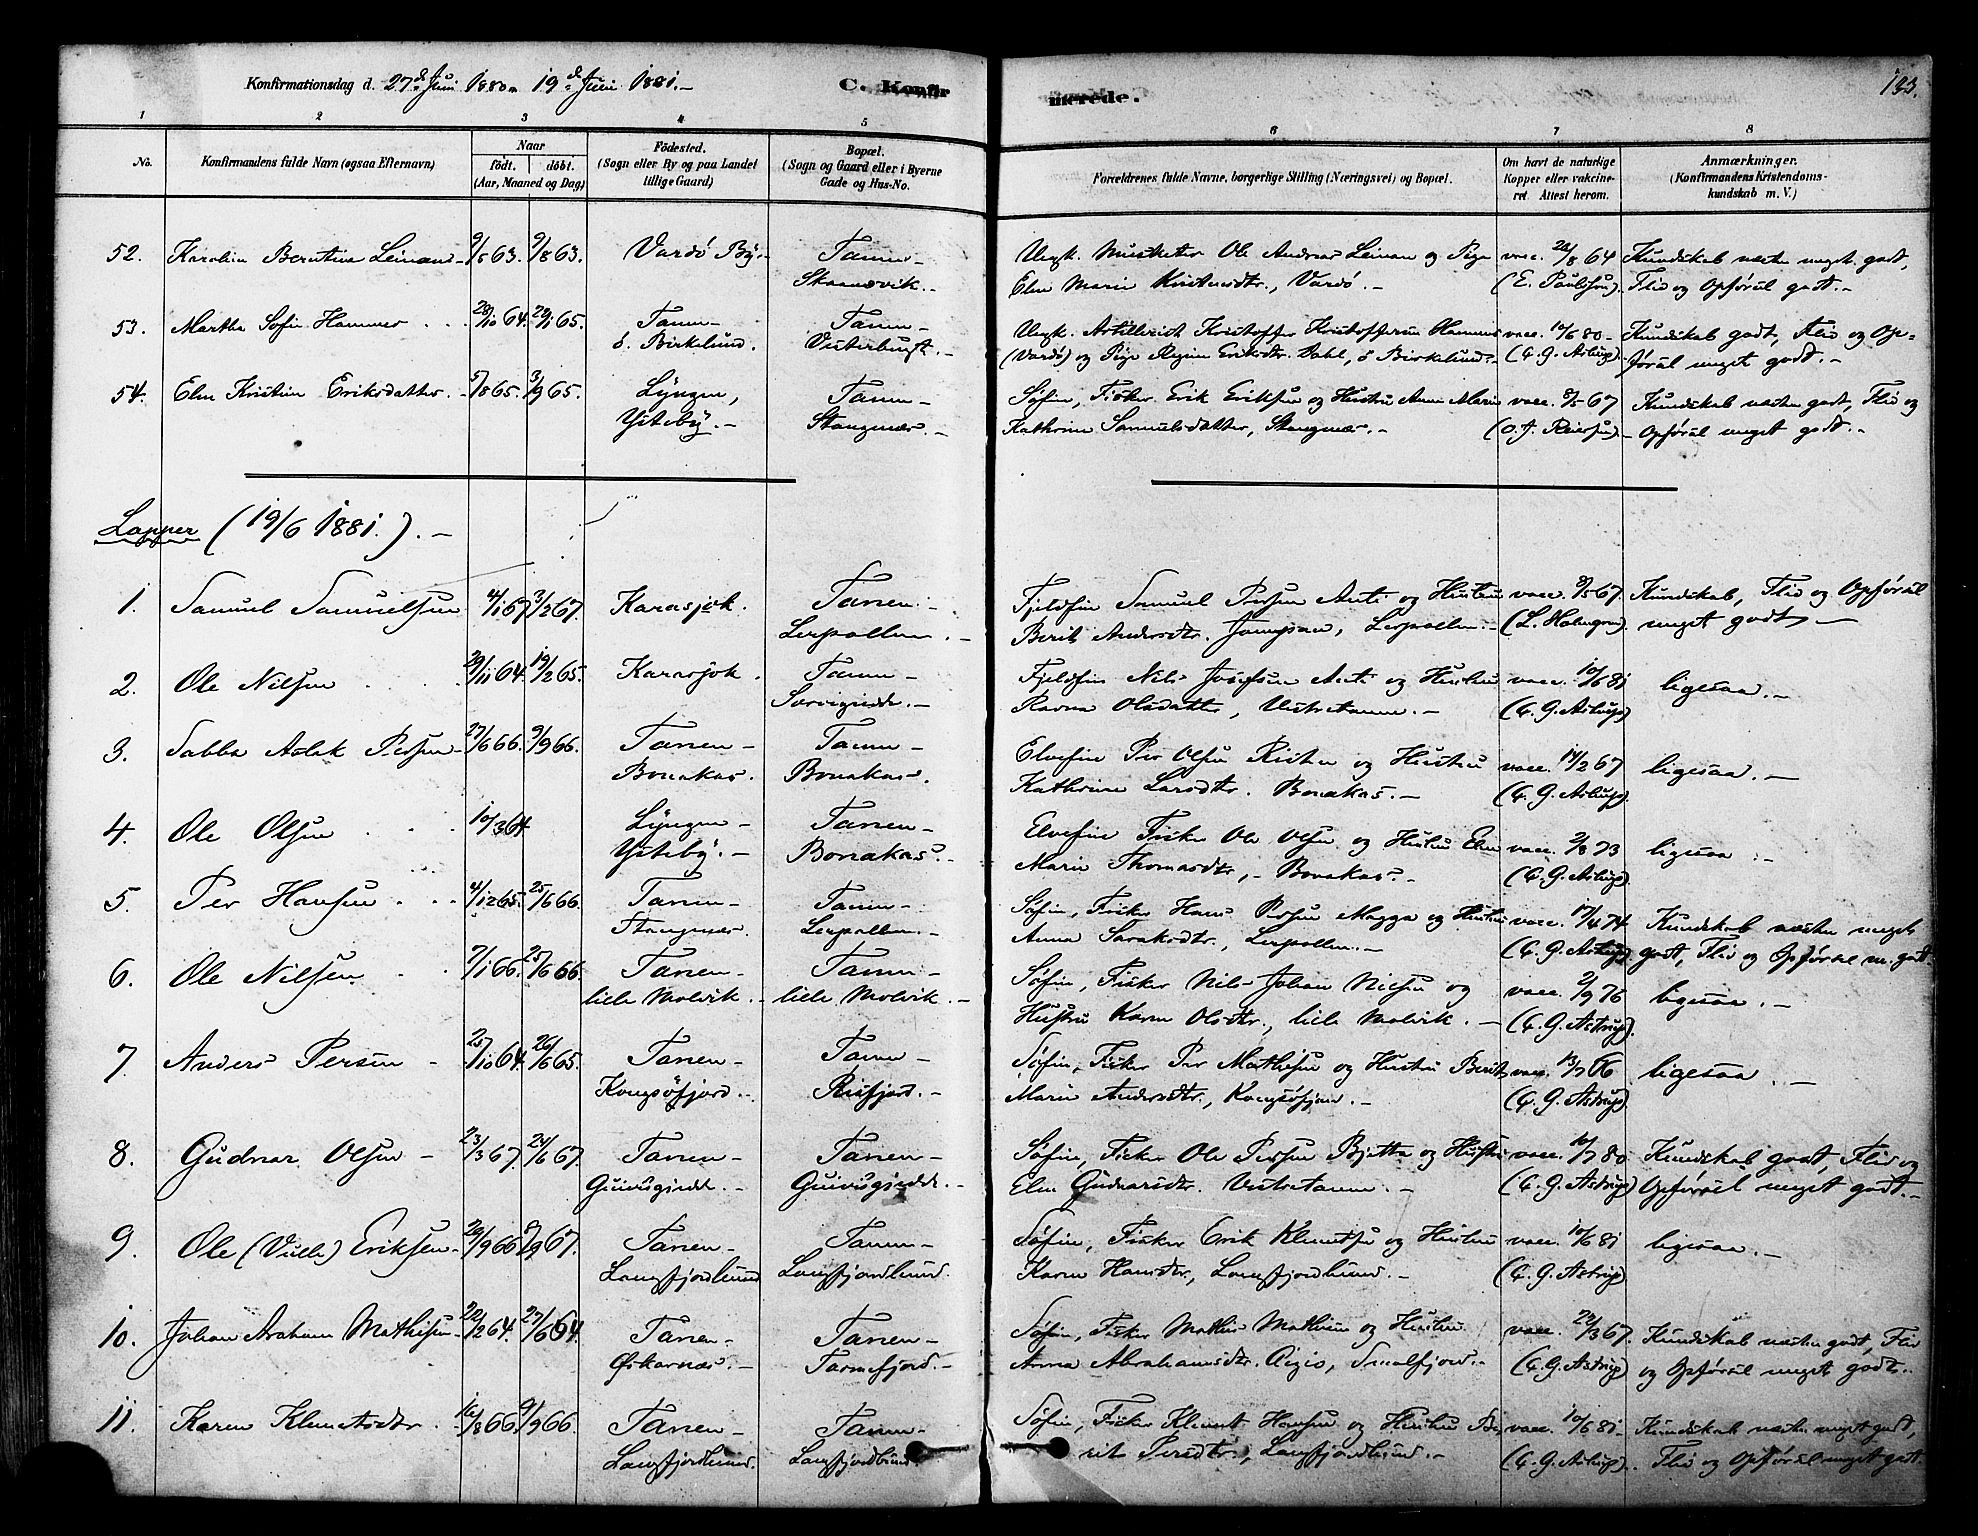 Konfirmationsdag d. 27de Juni 1880 19de Juni 1881.—
C. Konfir
merede.
133.
1 2 3 4 5 6 7 8
No.
Konfirmandens fulde Navn (ogsaa Efternavn)
Naar
födt. döbt.
(Aar, Maaned og Dag)
Födested.
(Sogn eller By og paa Landet
tillige Gaard)
Bopæl.
(Sogn og Gaard eller i Byerne
Gade og Hus-No.
Forældrenes fulde Navne, borgerlige Stilling (Næringsvei) og Bopæl.
Om havt de naturlige
Kopper eller vakcine-
ret. Attest herom.
Anmærkninger.
(Konfirmandens Kristendoms-
kundskab m. V.)
52. Karolin Berntine Leinans 9/8 63. 9/8 63. Vardö By.— Tanen— Uegt. Musketer Ole Andreas Leinan og Pige vacc. 8 64 Kundskab næsten meget godt,
Elen Marie Kristensdtr., Vardö.— (E. Paulssen). Flid og Opførsel godt.—
53. Martha Sofie Hammer 28/10 64. 65. Tanen— Tanen— Uegt. Artillerist Kristoffer Kristoffersen Hammer vacc. 10/6 80— Kundskab godt, Flid og Op-
Birkelund. Vesterbugt.— (Vardö) og Pige Regine Eriksdtr. Dahl, Birkelund.— (C. G. Astrup). førsel meget godt.—
54. Elen Kristine Eriksdatter. 5/8 65. 3/9 65. Lyngen, Tanen— Søfin, Fisker Erik Eriksen og Hustru Anne Marie vacc. 67 Kundskab næsten godt, Flid og
Ysteby.— Stangnæs.— Kathrine Samuelsdatter, Stangnæs.— (O. J. Reiersen). Opførsel meget godt.—
Lapper (19/6 1881.).—
1. Samuel Samuelsen 4/1 67 3/2 67. Karasjok. Tanen— Fjeldfin Samuel Persen Anti og Hustru vacc. 67. Kundskab, Flid og Opførsel
Lerpollen.— Berit Andersdtr. , Lerpollen.— (L. Holmgren). meget godt.—
2. Ole Nilsen 29/11 64. 19/2 65. Karasjok. Tanen— Fjeldfin Nils Josefsen Anti og Hustru vacc. 10/6 81 ligesaa.—
Ravna Olsdatter, Vestretanen.— (C. G. Astrup).
3. Sabba Aslak Persen 27/6 66. 9/9 66. Tanen— Tanen— Elvefin Per Olsen Risten og Hustru vacc. 14/2 67 ligesaa.—
Bonakas. Bonakas. Kathrine Larsdtr. Bonakas.— (C. G. Astrup).
4. Ole Olsen 10/3 64. Lyngen— Tanen— Elvefin Fisker Ole Olsen og Hustru Elen vacc. 2/8 73 ligesaa.—
Ysteby.— Bonakas.— Marie Thomasdtr.,— Bonakas.— (C. G. Astrup).
5. Per Hansen 4/12 65. 25/6 66. Tanen— Tanen— Søfin, Fisker Hans Persen Magga og Hustru vacc. 17/4 74 Kundskab næsten meget
Stangnæs. Lerpollen.— Anna Saraksdtr., Lerpollen.— (C. G. Astrup). godt, Flid og Opførsel m. godt.
6. Ole Nilsen 7/1 66. 25/6 66. Tanen— Tanen— Søfin, Fisker Nils Johan Nilsen og vacc. 2/9 76 ligesaa.—
lille Molvik.— lille Molvik.— Hustru Karen Olsdtr., lille Molvik.— (C. G. Astrup).
7. Anders Persen 25/10 64. 26/6 65. Tanen— Tanen— Søfin, Fisker Per Mathisen og Hustru Berit vacc. 13/7 66 ligesaa.—
Kongsöfjord.— Risfjord.— Marie Andersdtr., Kongsöfjord.— (C. G. Astrup).
8. Gudnar Olsen 23/3 67. 24/6 67. Tanen— Tanen— Søfin, Fisker Ole Persen Bjetta og Hustru vacc. 10/7 80 Kundskab godt, Flid og
Guivugiedde.— Guivugiedde.— Elen Gudnarsdtr. Vestretanen.— (C. G. Astrup) Opførsel meget godt.—
9. Ole (Vulle) Eriksen 29/9 66 8/9 67. Tanen— Tanen— Søfin, Fisker Erik Klemetsen og Hustru vacc. 10/6 81 ligesaa.—
Langfjordbund Langfjordbund. Karen Hansdtr., Langfjordbund.— (C. G. Astrup)
10. Johan Araham Mathisen 22/2 64. 27/6 64. Tanen— Tanen— Søfin, Fisker Mathis Mathisen og Hustru vacc. 22/3 67. Kundskab næsten godt, Flid
Oskarnæs.— Tarmefjord.— Anna Abrahamsdtr. , Smalfjord.— (C. G. Astrup) og Opførsel meget godt.—
11. Karen Klemetsdtr. 16/8 66. 9/9 66. Tanen— Tanen— Søfin, Fisker Klemet Hansen og Hustru Be- vacc. 10/6 81— Kundskab næsten meget godt,
Langfjordbund. Langfjordbund rit Persdtr., Langfjordbund.— (C. G. Astrup). Flid og Opførsel meget godt.